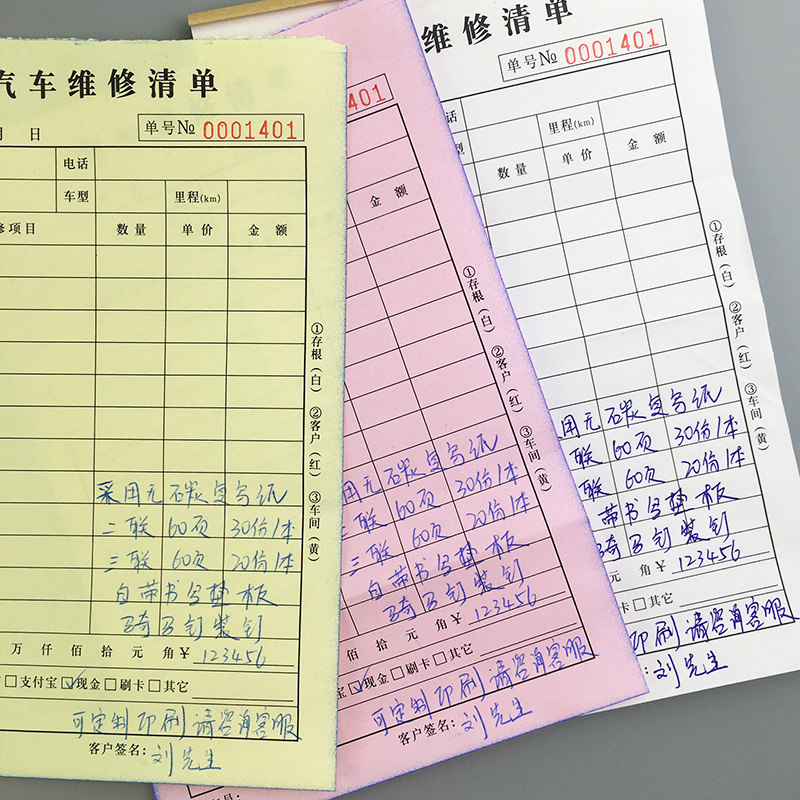 汽车维修清单
月 日
单号№ 0001401
电话
车型 里程(km)
修项目 数量 单价 金额
①存根(白) ②客户(红) ③车间(黄)
采用无石炭复写纸
二联 60页 30份1本
三联 60页 20份1本
自带书写垫板
骑马钉装钉
万 仟 佰 拾 元 角 ¥ 123456
□支付宝 ☑现金 □刷卡 □其它
可定制印刷请咨询客服
客户签名: 刘先生
401
金额
①存根(白) ②客户(红) ③车间(黄)
用无石炭复写纸
二联 60页 30份1本
三联 60页 20份1本
自带书写垫板
骑马钉装钉
佰 拾 元 角 ¥ 123456
宝 ☑现金 □刷卡 □其它
可定制印刷请咨询客服
客户签名: 刘先生
员:
维修清单
单号№ 0001401
话
型 里程(km)
数量 单价 金额
①存根(白) ②客户(红) ③车间(黄)
用无石炭复写纸
联 60页 30份1本
联 60页 20份1本
带书写垫板
骑马钉装钉
元 角 ¥ 123456
卡 □其它
印刷请咨询客服
名: 刘先生